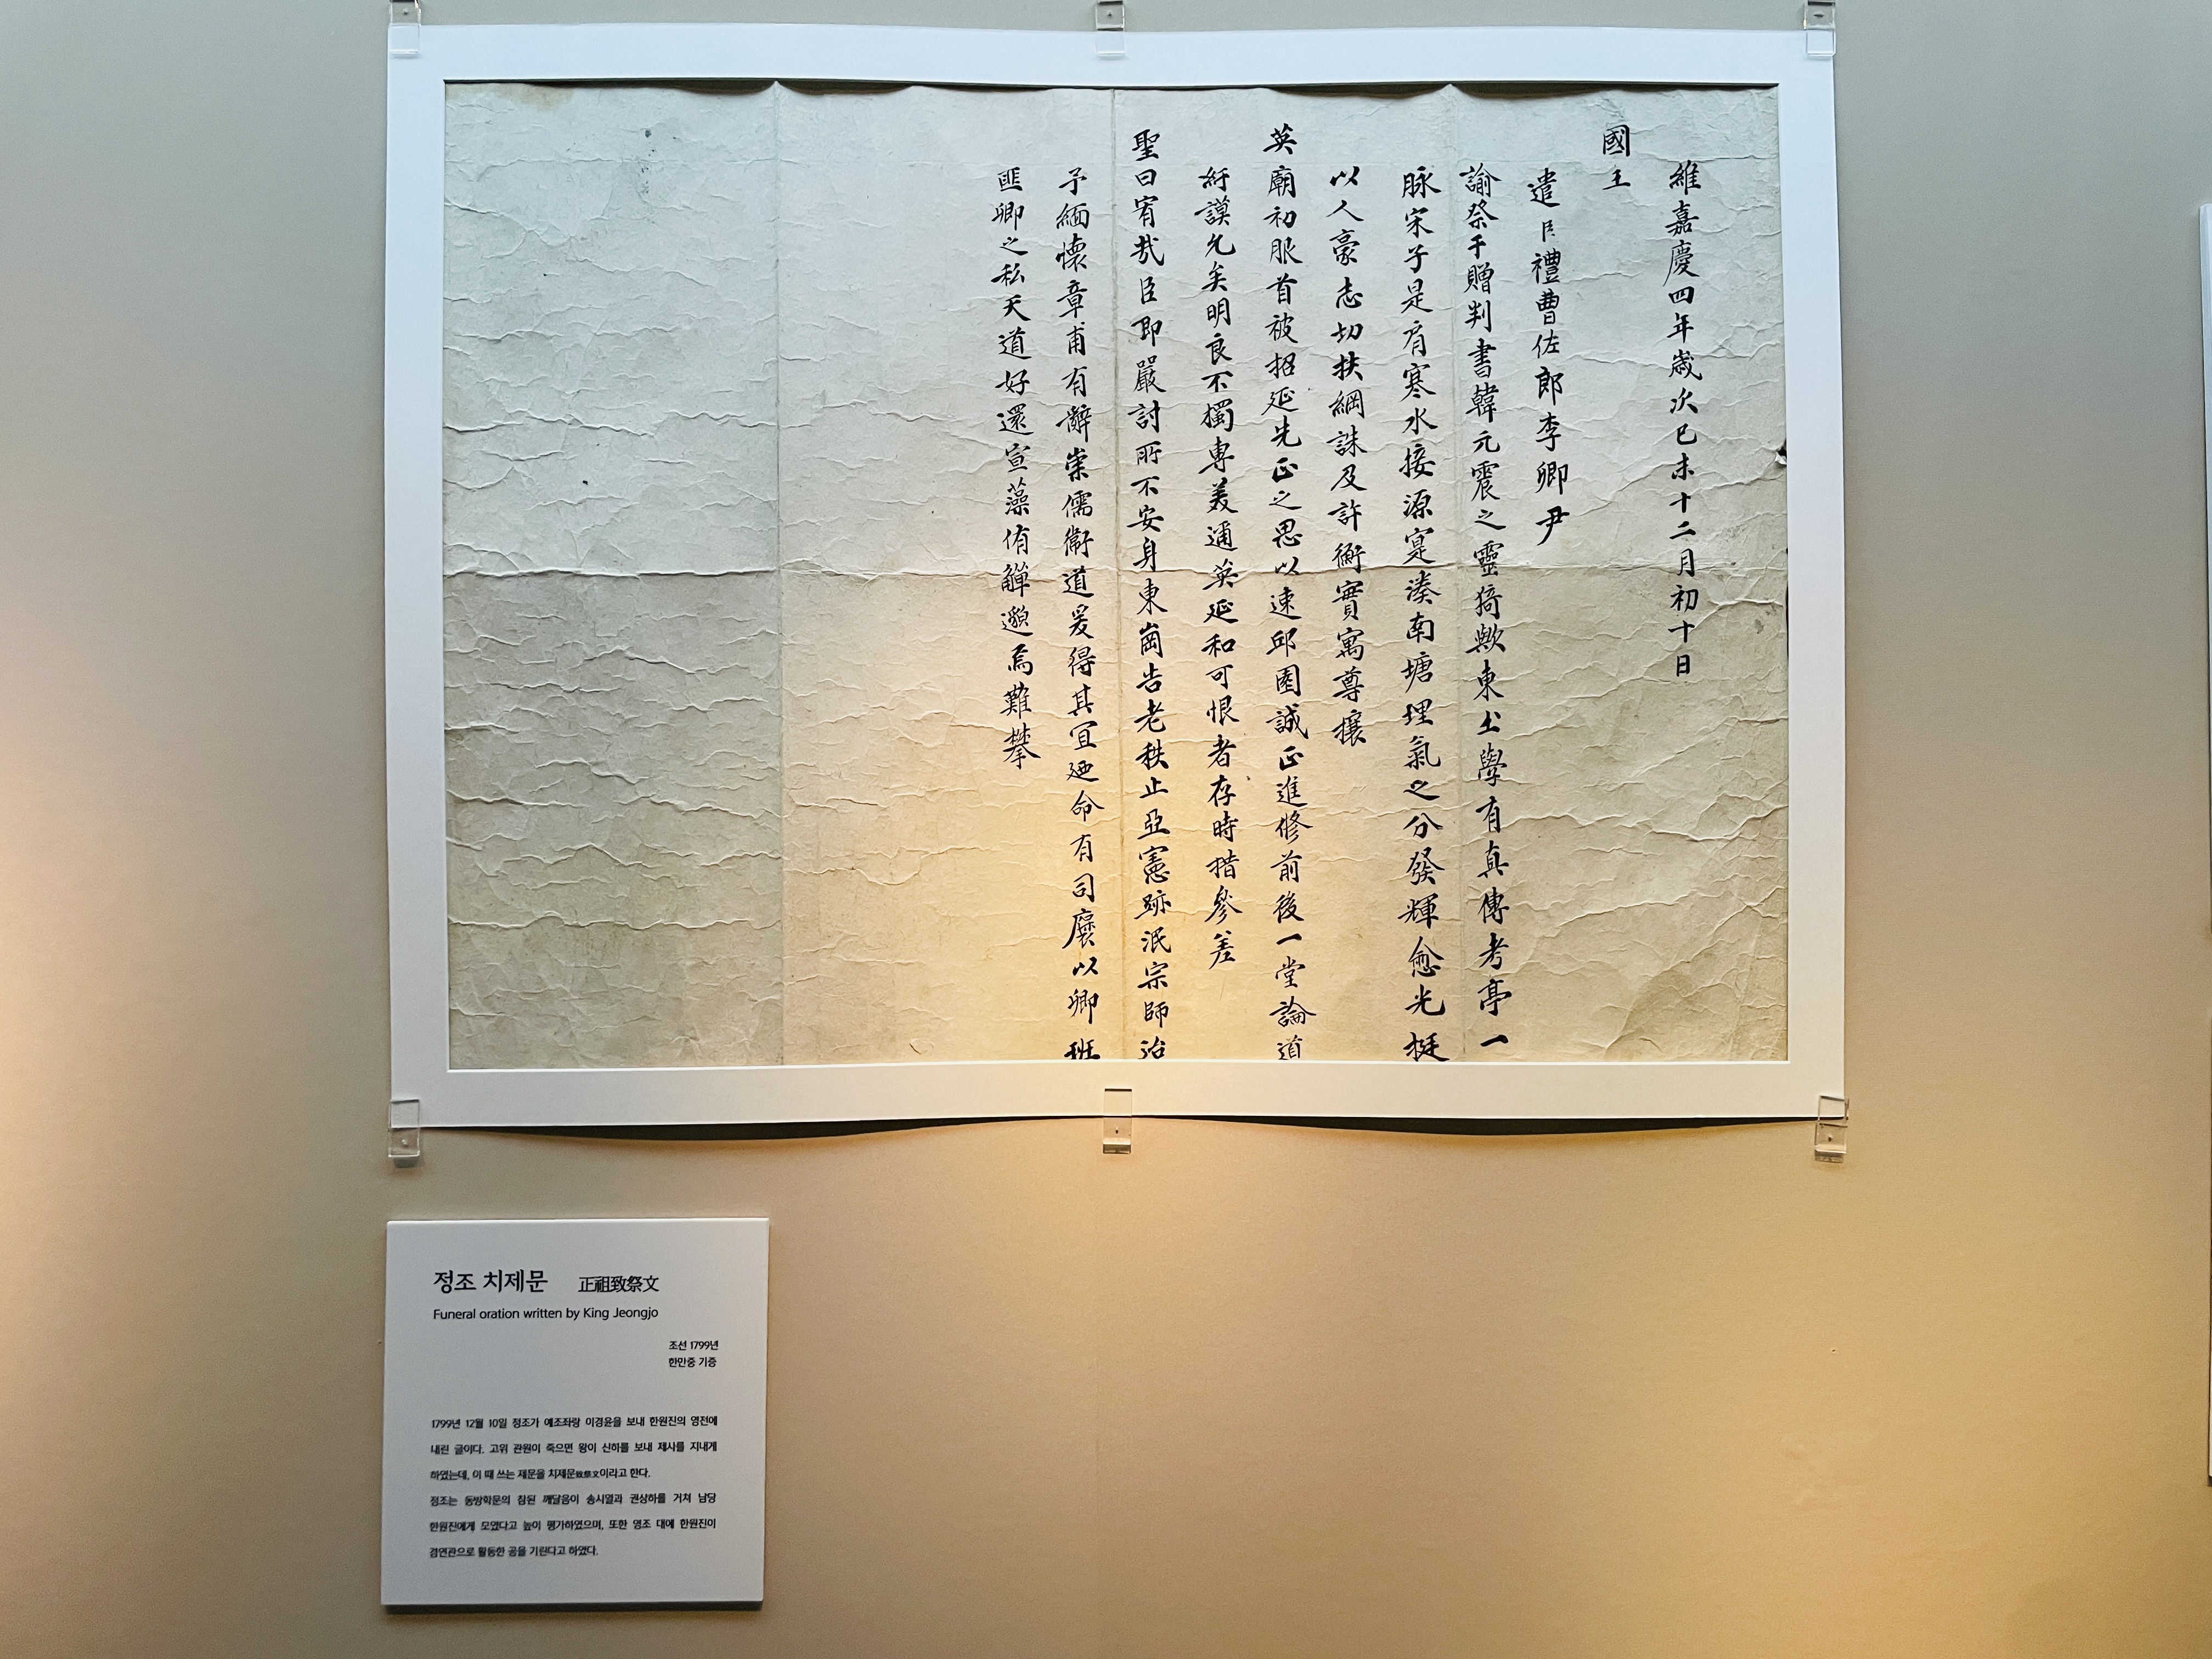 維嘉慶四年歲次己未十二月初十日
國王
遣臣禮曹佐郎李卿尹
諭祭于贈判書韓元震之靈猗歟東土學有眞傳考亭一
脉宋子是肩寒水接源寔湊南塘理氣之分發輝愈光挺
以人豪志切扶綱誅及許衡實寓尊攘
英廟初服首被招延先正之思以速邱園誠正進修前後一堂論道
紆謨允矣明良不獨專美適英延和可恨者存時措參差
聖曰宥哉臣卽嚴討所不安身東崗告老秩止亞憲跡泯宗師治
予緬懷章甫有辭崇儒衛道爰得其宜廼命有司縻以卿班
匪卿之私天道好還宣藻侑觶邈焉難攀
정조 치제문 正祖致祭文
Funeral oration written by King Jeongjo
조선 1799년
한만중 기증
1799년 12월 10일 정조가 예조좌랑 이경윤을 보내 한원진의 영전에
내린 글이다. 고위 관원이 죽으면 왕이 신하를 보내 제사를 지내게
하였는데, 이 때 쓰는 제문을 치제문致祭文이라고 한다.
정조는 동방학문의 참된 깨달음이 송시열과 권상하를 거쳐 남당
한원진에게 모였다고 높이 평가하였으며, 또한 영조 대에 한원진이
경연관으로 활동한 공을 기린다고 하였다.